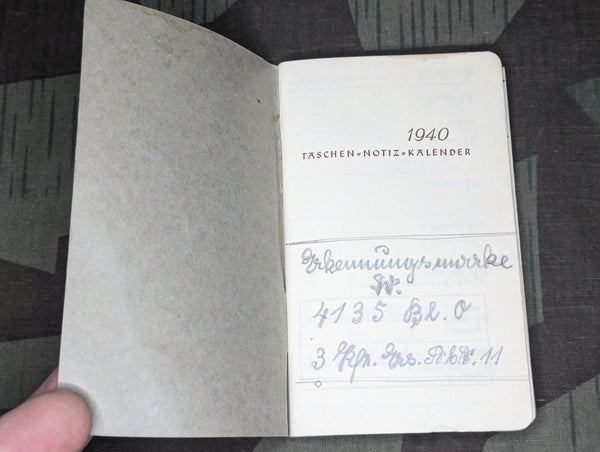 1940
TASCHEN=NOTIZ=KALENDER
Erkennungsmarke
Nr.
4135 Bl. 0
3 Kfz. Ers. Abt. 11